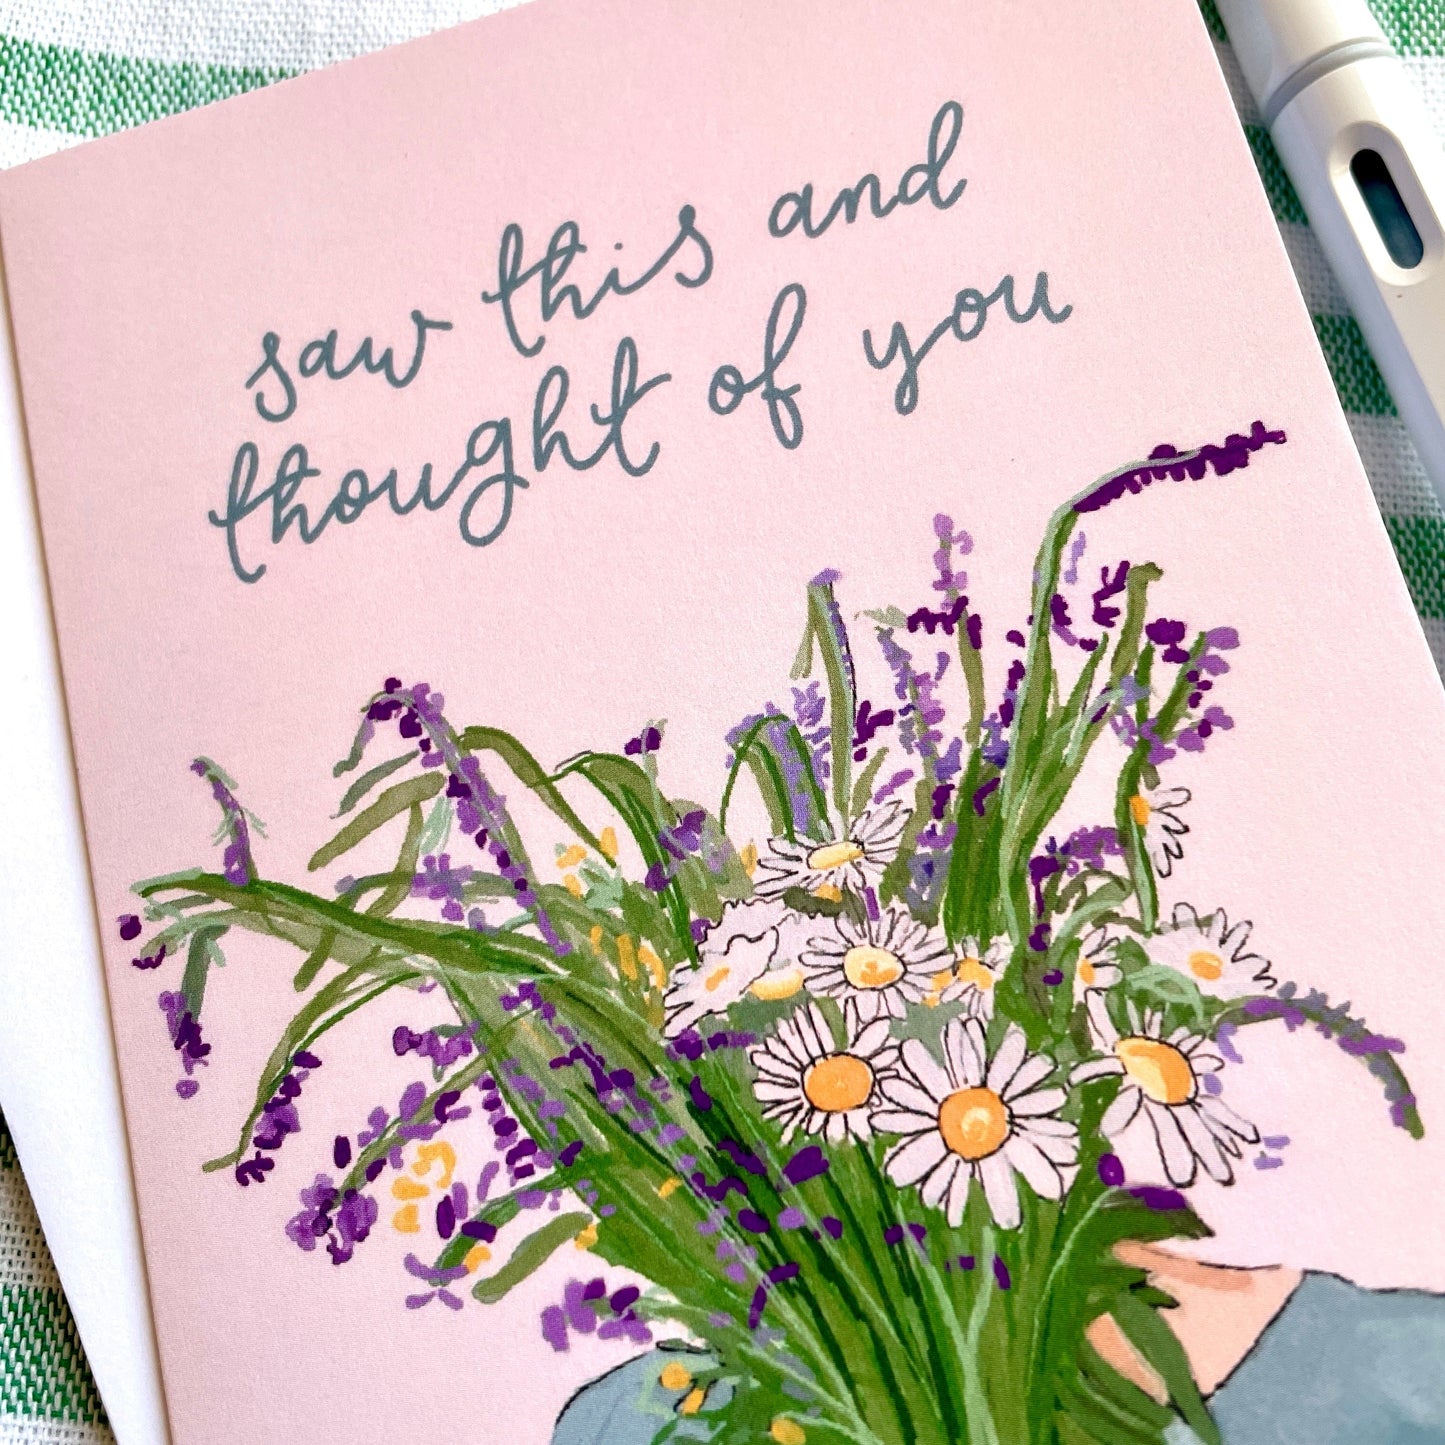 saw this and
thought of you